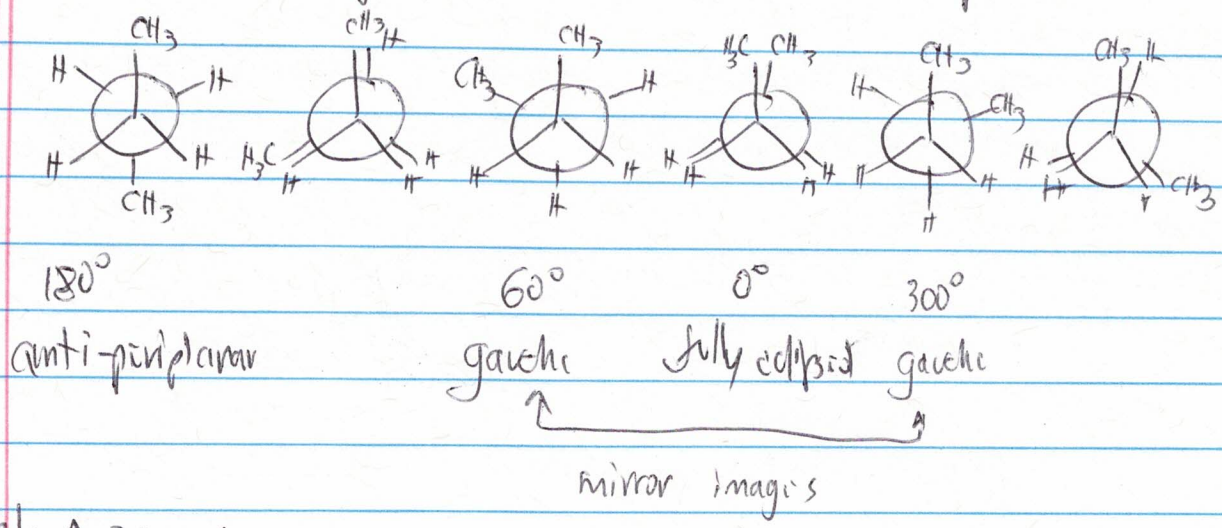 CH3 CH3 H CH3 H3C CH3 CH3 CH3 H
H H CH3 H H CH3
H H H3C H H H H H H H H H H
CH3 H H H H H H H CH3
180° 60° 0° 300°
anti-piriplanar gauche fully eclipsed gauche
mirror images